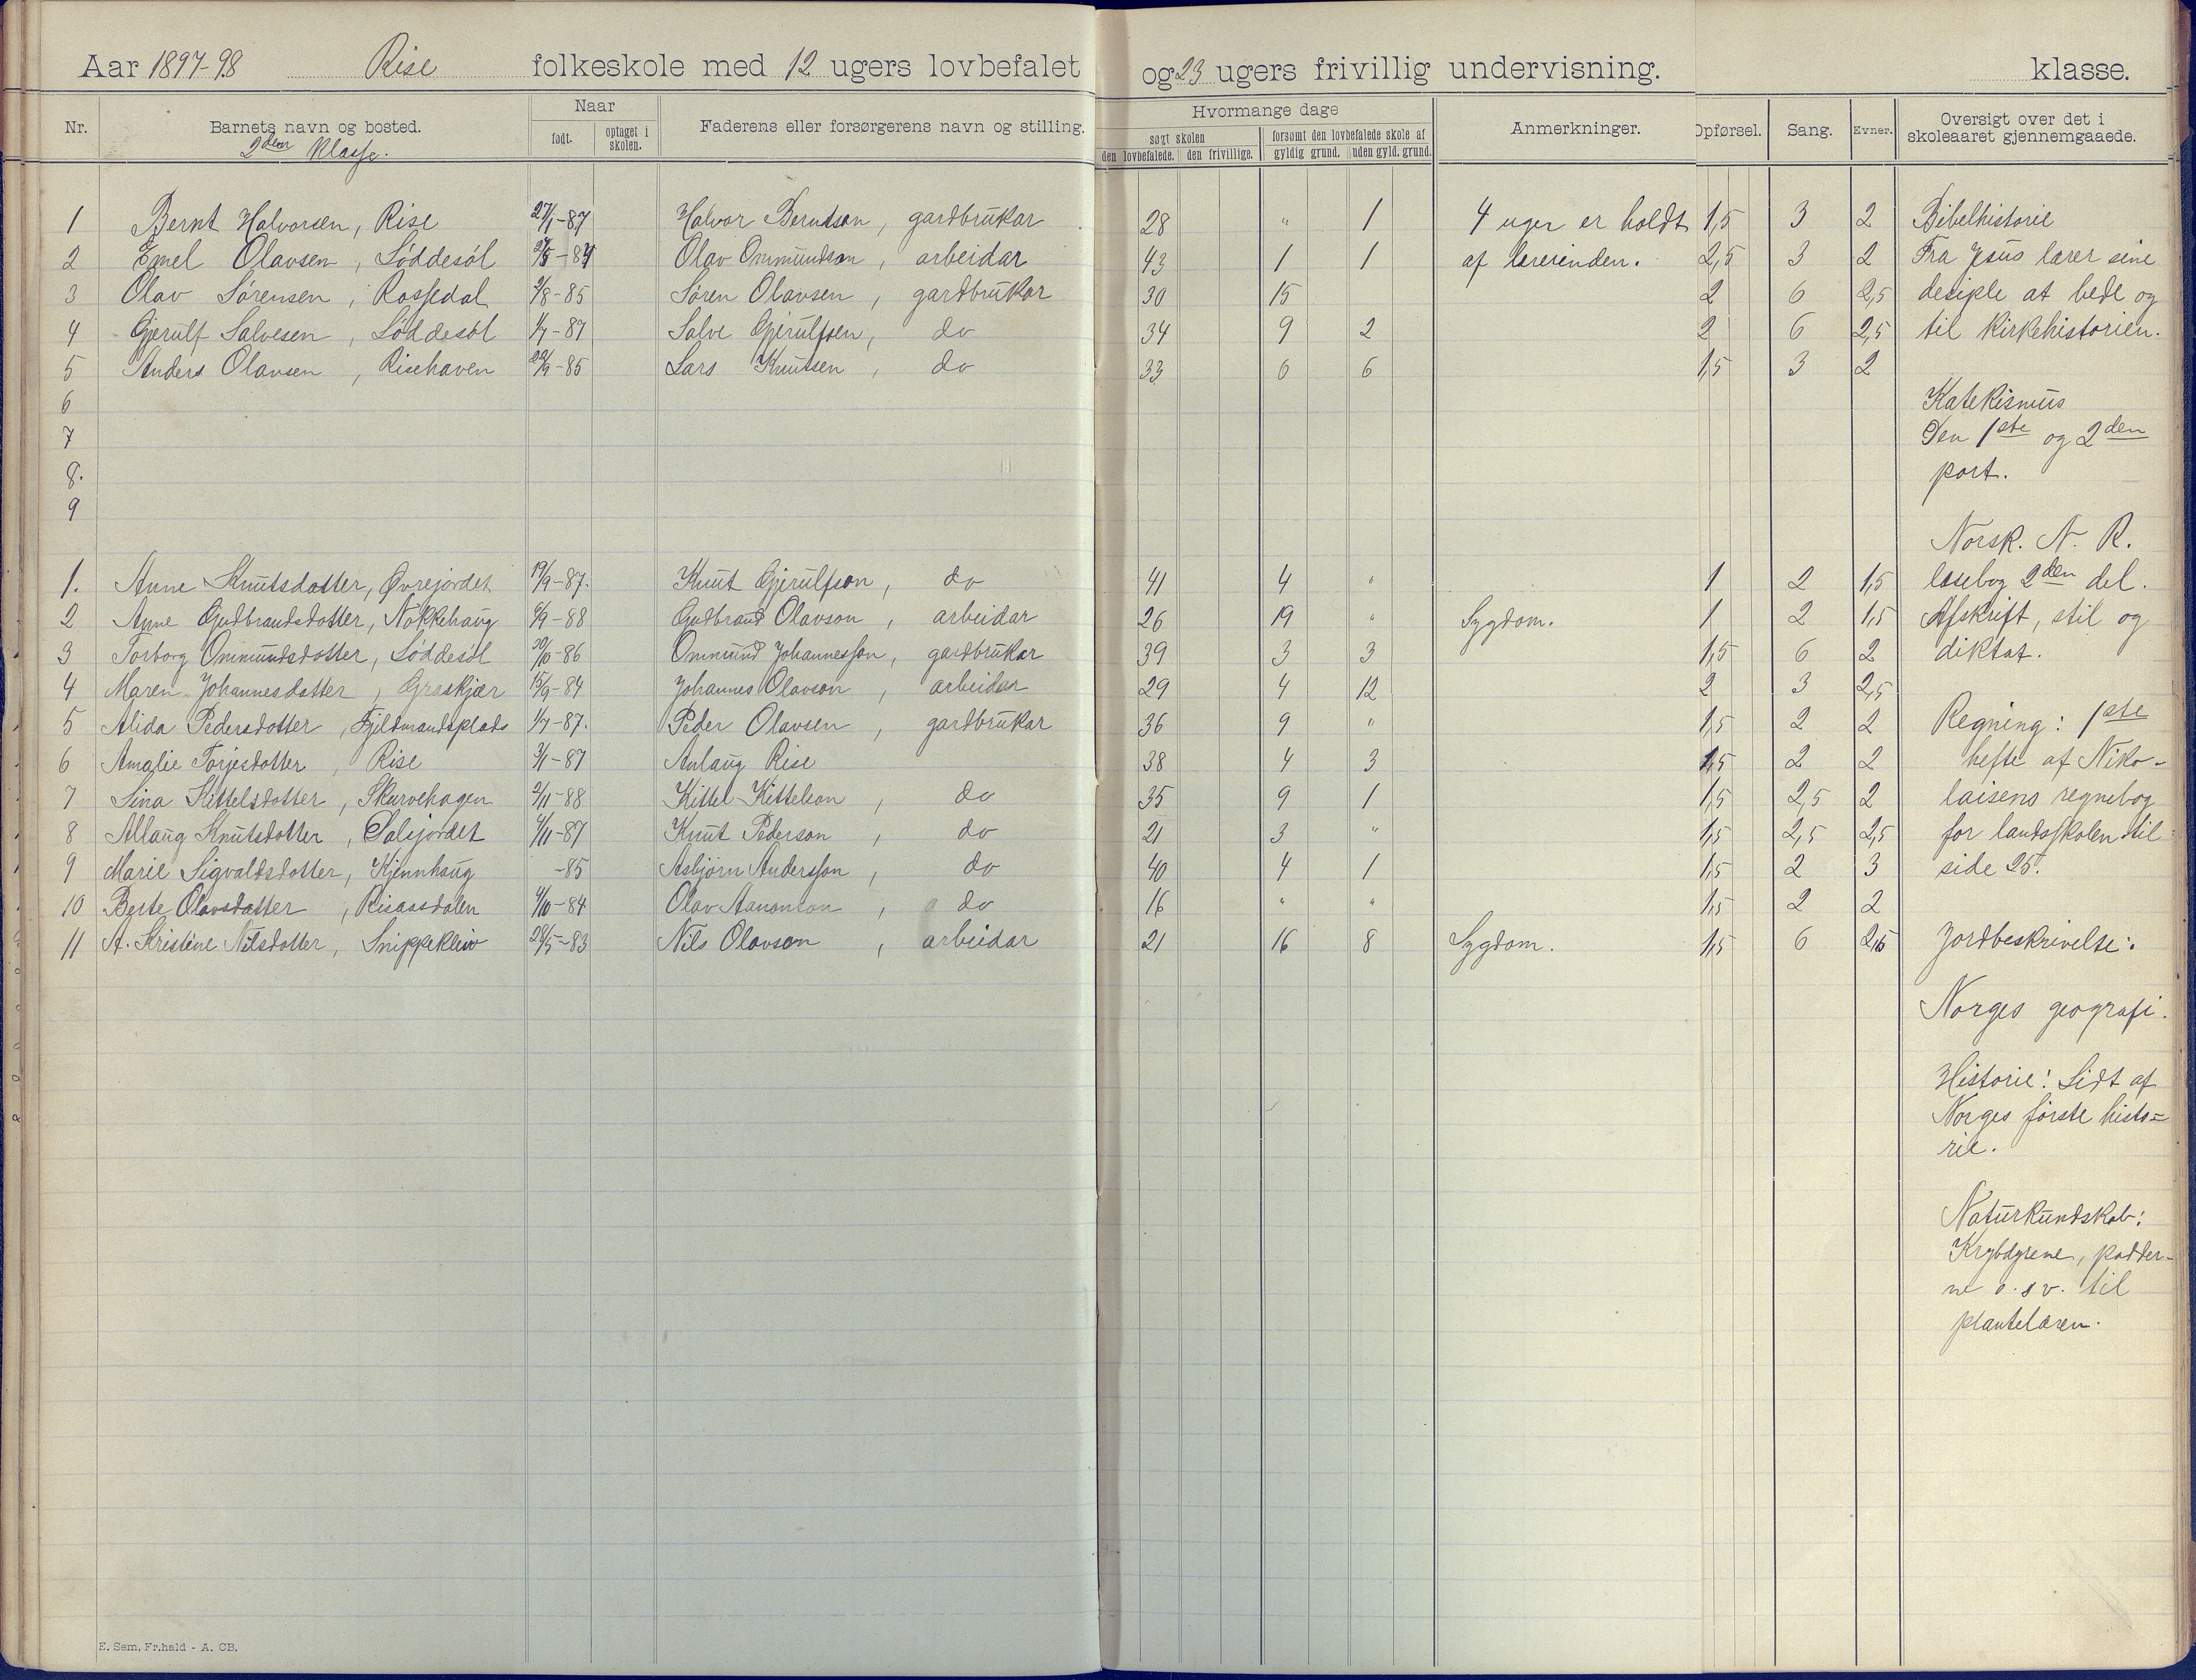 Aar 1897-98 Rise folkeskole med 12 ugers lovbefalet og 23 ugers frivillig undervisning. klasse.
Nr. Barnets navn og bosted. Naar født. optaget i skolen. Faderens eller forsørgerens navn og stilling. Hvormange dage søgt skolen den lovbefalede. den frivillige. forsømt den lovbefalede skole af gyldig grund. uden gyld. grund. Anmerkninger. Opførsel. Sang. Evner. Oversigt over det i skoleaaret gjennemgaaede.
2den klasse.
1 Bernt Halvorsen, Rise 27/1-87 Halvor Berntsen, gardbrukar 28 " 1 4 uger er holdt 1,5 3 2 Bibelhistorie
2 Emel Olavsen, Løddesøl Olav Ommundson, arbeidar 43 1 1 af lærerinden. 2,5 3 2 Fra Jesus lærer sine
3 Olav Sørensen, Rossedal 2/8-85 Søren Olavsen, gardbrukar 30 15 2 6 2,5 desiple at bede og
4 Gjerulf Salvesen, Løddesøl 1/7-87 Salve Gjerulfsen, do 34 9 2 2 6 2,5 til kirkehistorien.
5 Anders Olavsen, Risehaven 22/9-85 Lars Knutsen, do 33 0 6 1,5 3 2
6 Katekismus
7 Den 1ste og 2den
8. part.
9
Norsk. N. R.
1. Anne Knutsdatter, Øvrejordet 19/9-87. Knut Gjerulfson, do 41 4 " 1 2 1,5 læsebog 2den del.
2 Anne Gudbrandsdotter, Nakkehaug 6/9-88 Gudbrand Olavson, arbeidar 26 19 " Sygdom. 1 2 1,5 Afskrift, stil og
3 Torborg Ommundsdotter, Løddesøl 30/10-86 Ommund Johannesson, gardbrukar 39 3 3 1,5 6 2 diktat.
4 Maren Johannesdatter, Græskjær 15/9-84 Johannes Olavson, arbeidar 29 4 12 2 3 2,5
5 Alida Pedersdotter, Fjeldmandsplads 1/7-87. Peder Olavsen, gardbrukar 36 9 " 1,5 2 2 Regning: 1ste
6 Amalie Torjesdotter, Rise 3/1-87 Anlaug Rise 38 4 3 1,5 2 2 hefte af Niko-
7 Sina Kittelsdotter, Skurvehagen 2/11-88 Kittel Kittelson, do 35 9 1 1,5 2,5 2 laisens regnebog
8 Allaug Knutsdotter, Salsjordet 4/11-87 Knut Pederson, do 21 3 " 1,5 2,5 2,5 for landsskolen til
9 Marie Sigvaldsdotter, Kjennhaug -85 Asbjørn Andersson, do 40 4 1 1,5 2 3 side 25.
10 Berte Olavsdatter, Risaasdalen 4/10-84 Olav Aanonson, do 16 " " 1,5 2 2
11 A. Kristine Nilsdotter, Snippekleiv 28/5-83 Nils Olavson, arbeidar 21 16 8 Sygdom. 1,5 6 2,5 Jordbeskrivelse:
Norges geografi.
Historie: Lidt af
Norges første histo-
rie.
Naturkundskab:
Krybdyrene, padder-
ne o.sv. til
plantelæren.
E. Sem, Fr.hald - A. CB.